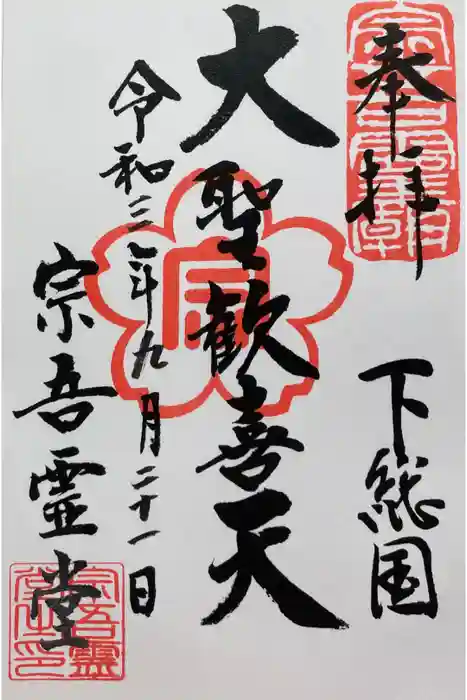 奉拝
下総国
大聖歓喜天
令和三年九月二十一日
宗吾霊堂
宗吾霊堂